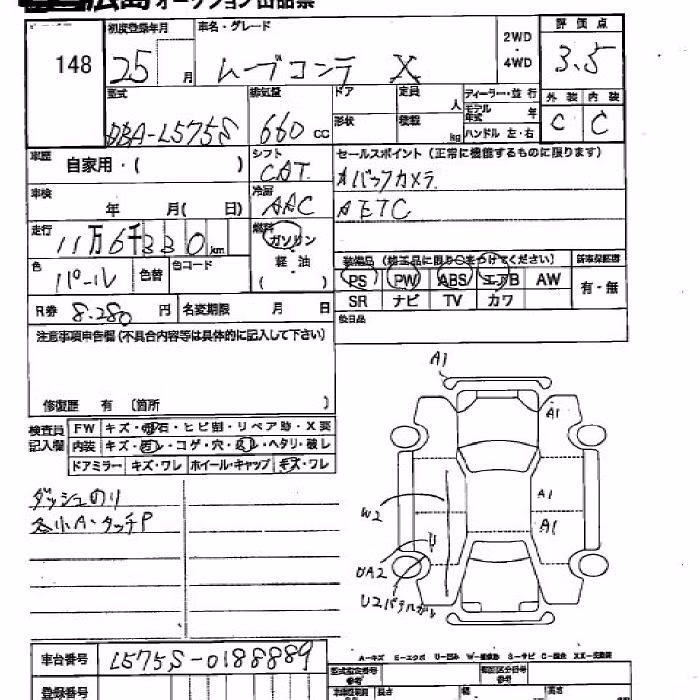 広島オークション出品票
148
初度登録年月
25 月
車名・グレード
ムーブコンテ X
2WD
・
4WD
評価点
3.5
型式
DBA-L575S
排気量
660 cc
ドア
定員 人
ディーラー・並行
モデル年式 年
形状
積載 kg
ハンドル 左・右
外装 内装
C C
車歴
自家用・( )
シフト
CAT
セールスポイント (正常に機能するものに限ります)
バックカメラ
ETC
車検
年 月( 日)
冷房
AAC
走行
11万6千330km
燃料
ガソリン
軽・油
( )
色
パール
色替
色コード
装備品 (純正品に限り○をつけてください)
新車保証書
PS PW ABS エアB AW
有・無
SR ナビ TV カワ
R券 8.280 円
名変期限 月 日
後日品
注意事項申告欄(不具合内容等は具体的に記入して下さい)
修復歴 有 (箇所 )
検査員
記入欄
FW キズ・飛石・ヒビ割・リペア跡・X要
内装 キズ・汚レ・コゲ・穴・スレ・ヘタリ・破レ
ドアミラー キズ・ワレ ホイール・キャップ キズ・ワレ
ダッシュのり
各小A・タッチP
A1
A1
A1
A1
W2
UA2
U2パテ
車台番号 L575S-0188889
登録番号
A-キズ E-エクボ U-凹み W-補修跡 S-サビ C-腐食 XX-交換済
型式指定番号
類別区分番号
長さ 幅 高さ